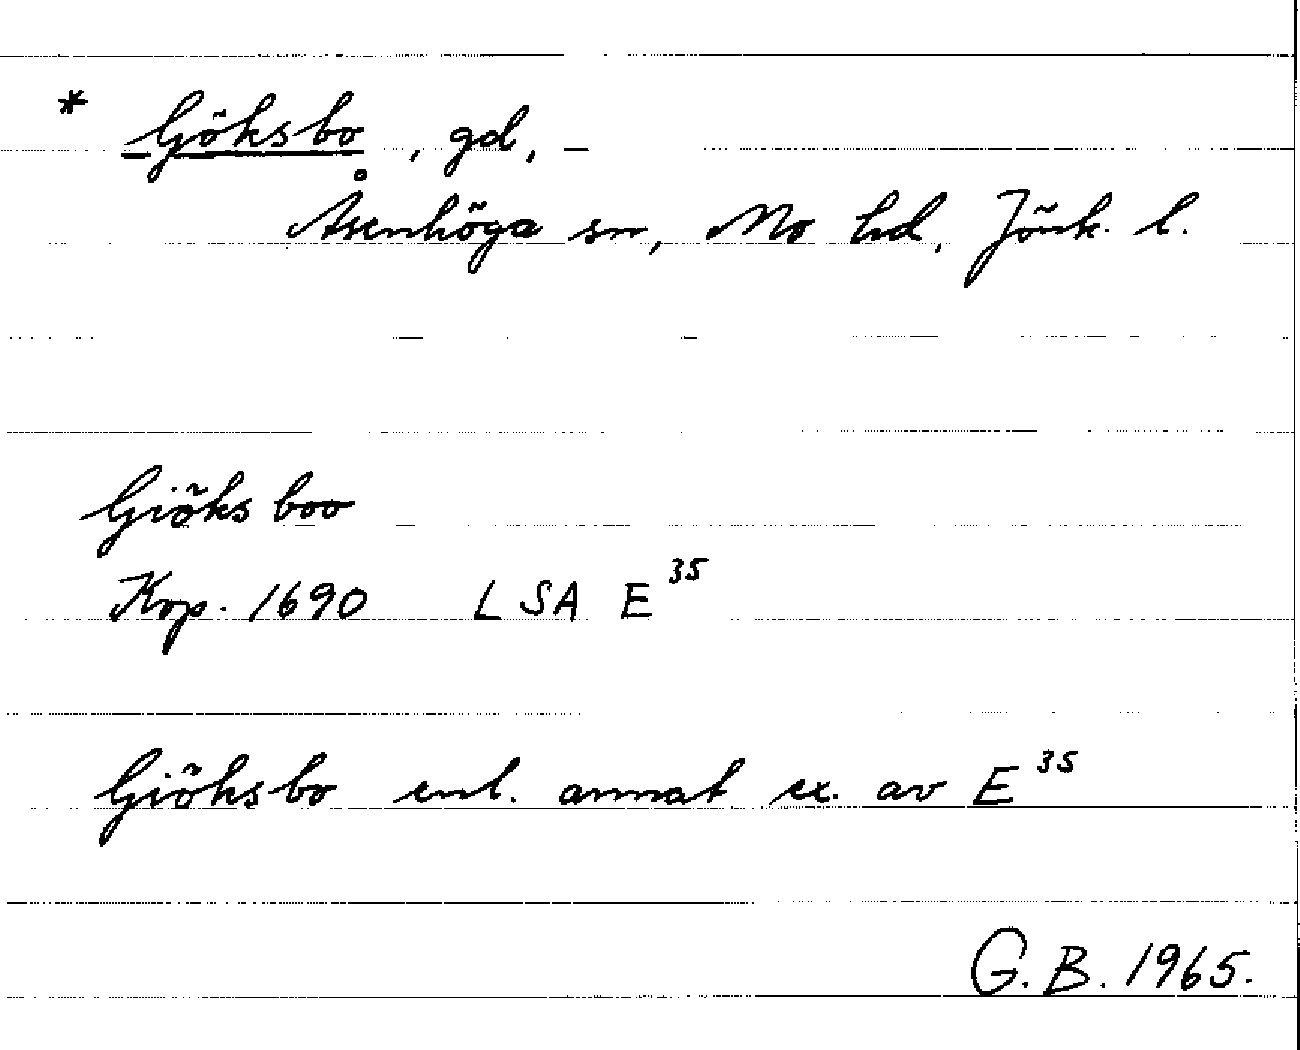 * Göksbo, gd,
Åsenhöga sn, Mo hd, Jönk. l.
Giöks boo
Kop. 1690 LSA E³⁵
Giöksbo enl. annat ex. av E³⁵
G.B. 1965.